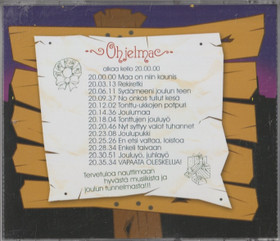 Ohjelma
alkaa kello 20.00.00
20.00.00 Maa on niin kaunis
20.03.13 Rekiretki
20.06.11 Sydämeeni joulun teen
20.09.37 No onkos tullut kesä
20.12.02 Tonttu-ukkojen potpuri
20.14.36 Joulumaa
20.18.04 Tonttujen jouluyö
20.20.46 Nyt syttyy valot tuhannet
20.23.08 Joulupukki
20.25.26 En etsi valtaa, loistoa
20.28.34 Enkeli taivaan
20.30.51 Jouluyö, juhlayö
20.35.34 VAPAATA OLESKELUA!
Tervetuloa nauttimaan
hyvästä musiikista ja
joulun tunnelmasta!!!